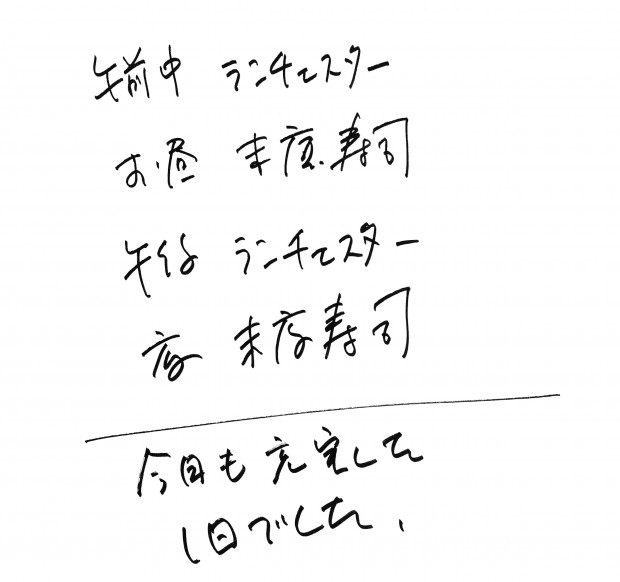 午前中 ランチェスター
お昼 末廣寿司
午後 ランチェスター
夜 末広寿司
今日も充実した
1日でした.